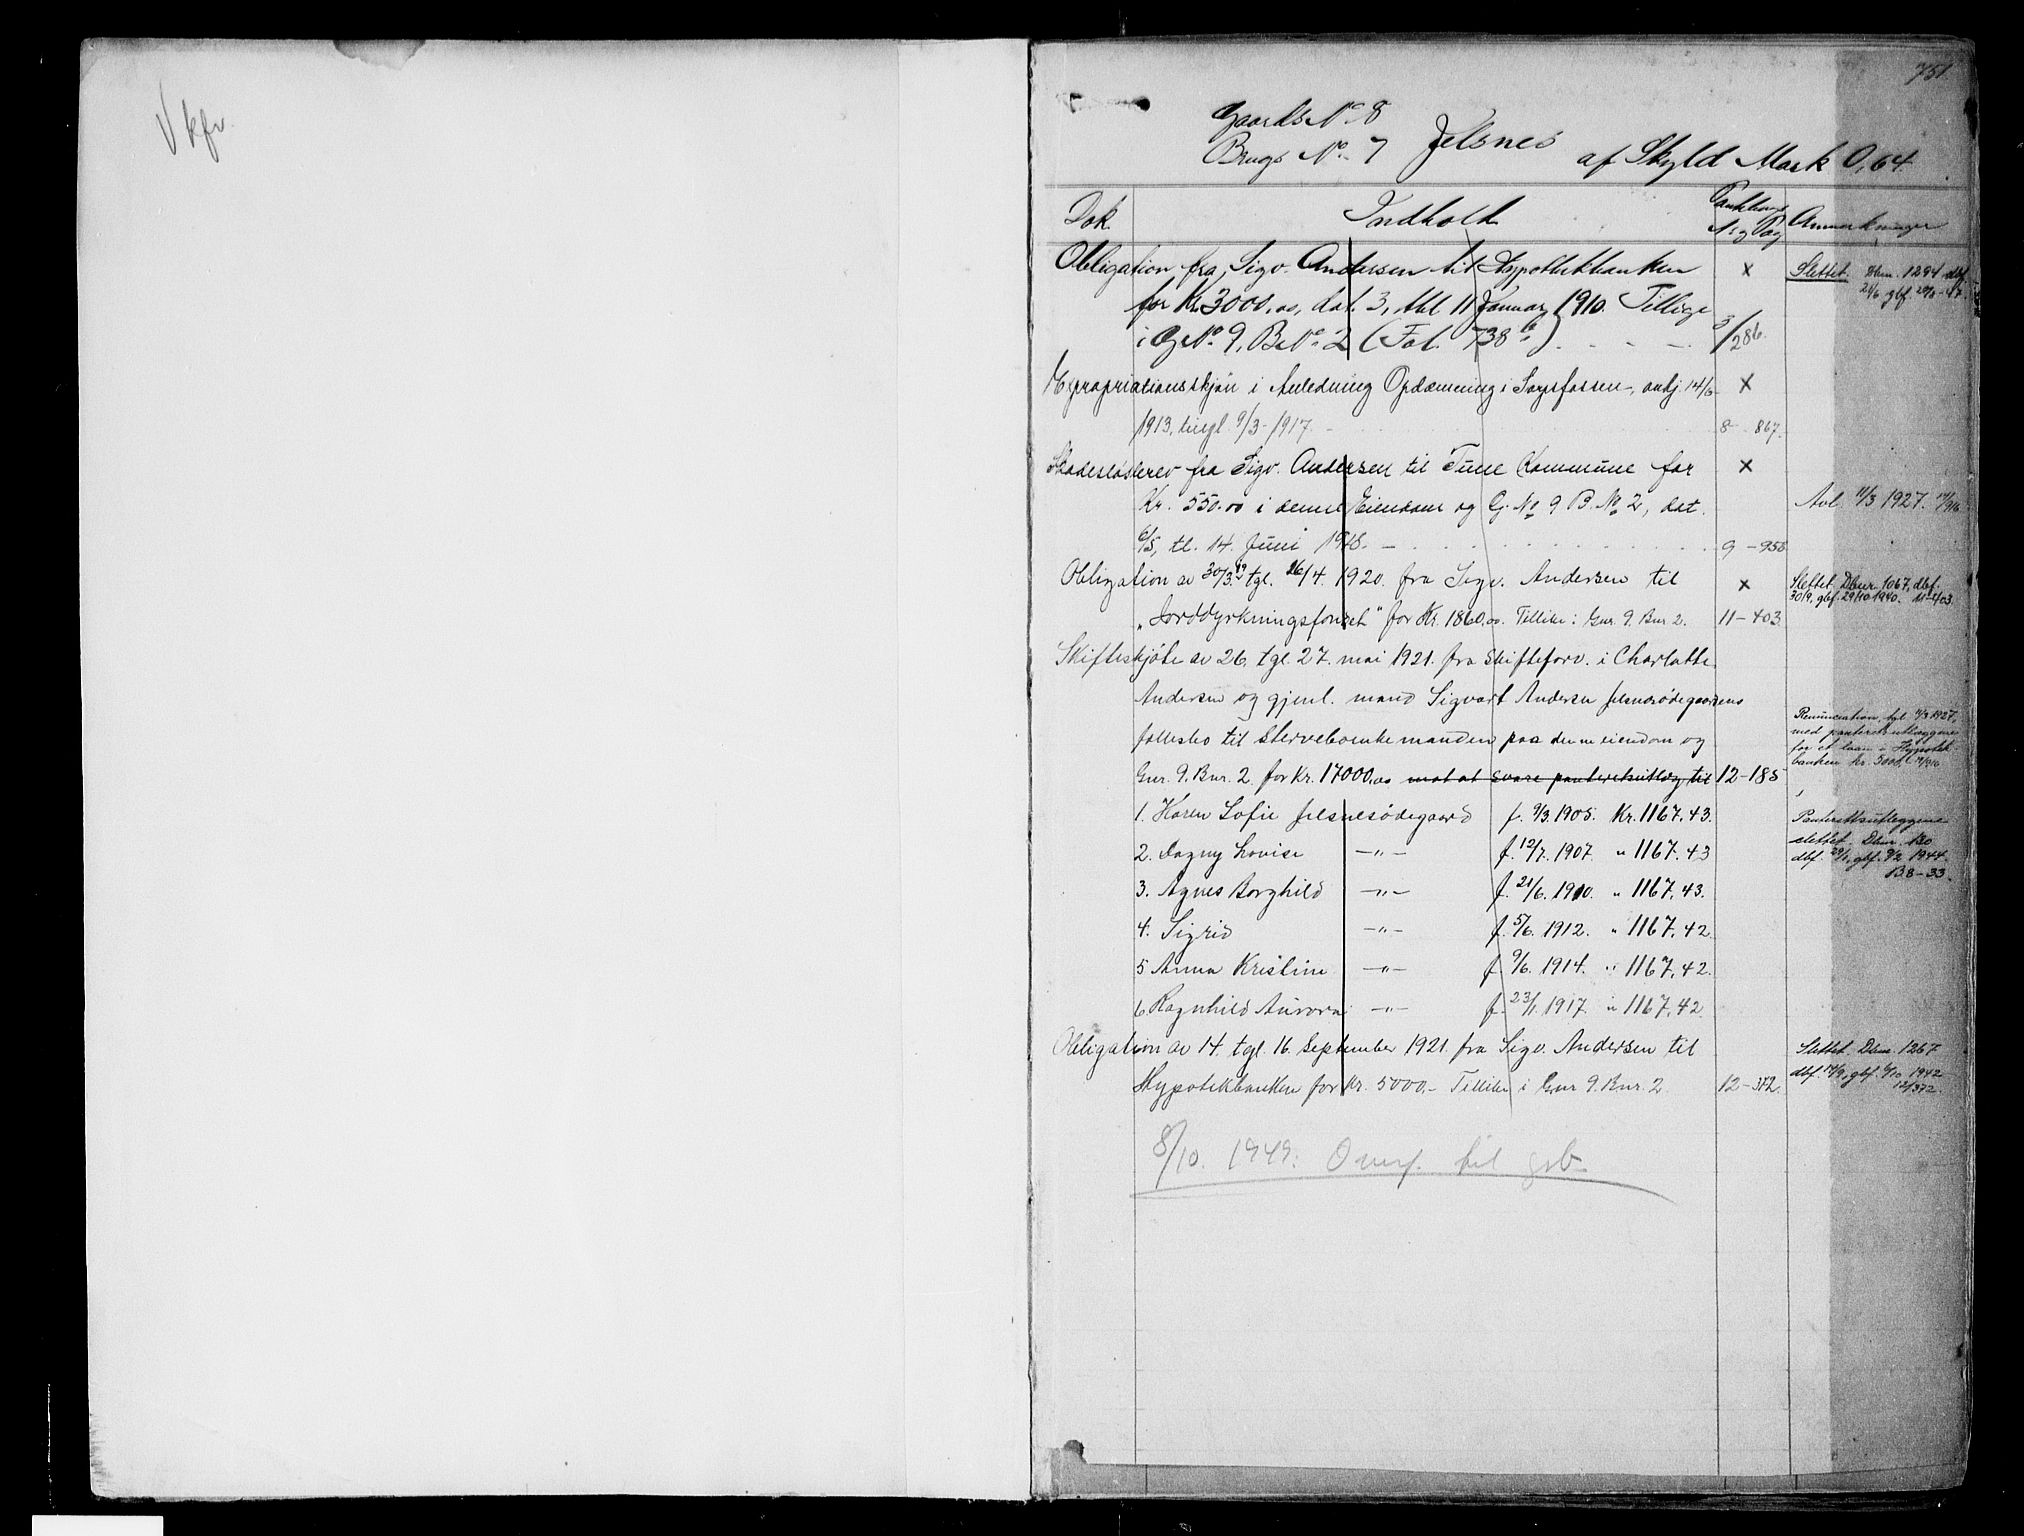 V kfr.
751.
Gaards No 8
Brugs No 7 Jelsnes af Skyld Mark 0,64.
Dok. Indhold Pantebog No og Pag Anmerkninger
Obligation fra Sigv. Andersen til Hypothekbanken × Slettet. Dbnr. 1294 dbf.
for Kr. 3000.00, dat. 3, thl 11 Januar 1910. Tillige
i G No 9, B No 2 (Fol. 738 b) 3/286.
Expropriationsskjøn i Anledning Opdæmning i Sarpsfossen, avhj. 14/6 ×
1913, tingl. 9/3-1917. 8 - 867.
Skadesløsbrev fra Sigv. Andersen til Tune Kommune for ×
Kr. 550.00 i denne Eiendom og G. No 9 B. No 2, dat. Avl. 11/3 1927.
6/5, tl. 14. Juni 1918. 9 - 958
Obligation av 30/3.19 tgl. 26/4. 1920. fra Sigv. Andersen til × Slettet. Dbnr. 1067, dbf.
30/9, gbf. 29/10 1940. 11-403.
"Jorddyrkningsfondet" for Kr. 1860.00. Tillike i Gnr. 9. Bnr 2. 11-403.
Skifteskjøte av 26. tgl. 27. mai 1921. fra Skifteforv. i Charlotte
Andersen og gjenl. mand Sigvart Andersen Jelsnesødegaardens
fellesbo til Stervboenkemanden paa denne eiendom og
Gnr. 9. Bnr. 2 for Kr. 17000.00 mot at svare panteretsutlæg til 12-185
Renunciation, tgl. 11/3 1927,
med panteretsutlæggene
for et laan i Hypotek
banken kr. 5000
1. Karen Sofie Jelsnesødegaard f. 9/3. 1905. Kr. 1167,43.
2. Dagny Lovise —"— f. 12/7. 1907. " 1167,43
3. Agnes Borghild —"— f. 21/6. 1910. " 1167,43.
4. Sigrid —"— f. 5/6. 1912. " 1167,42.
5 Anna Kristine —"— f. 9/6. 1914. " 1167,42.
6 Ragnhild Aurora —"— f. 23/1. 1917. " 1167,42.
Panteretsutleggene
slettet. Dbnr. 130
dbf. 29/1, gbf. 9/2 1944.
B8-33.
Obligation av 14. tgl. 16. September 1921. fra Sigv. Andersen til Slettet. Dbnr. 1267
Hypotekbanken for Kr. 5000.- Tillike i Gnr 9. Bnr. 2 12-372.
12/372.
8/10. 1949: Overf. til grb.